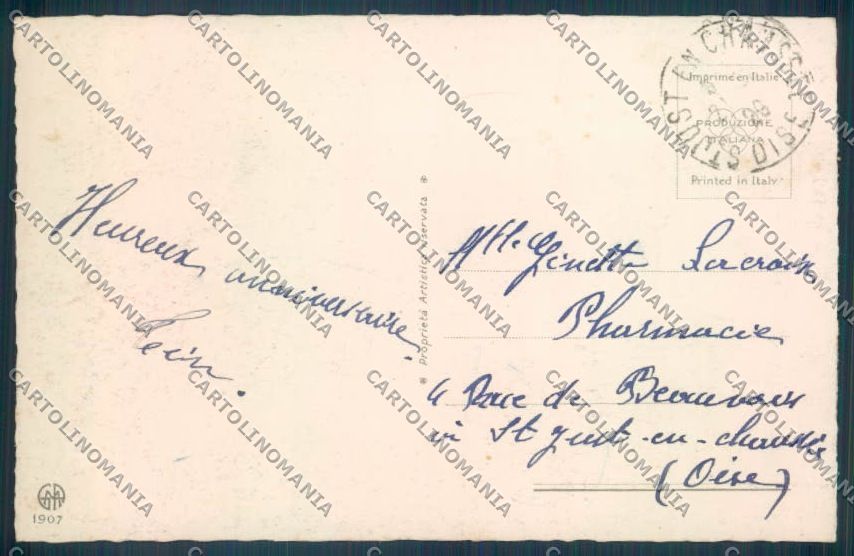 Heureux anniversaire.
✻ Proprietà Artistica riservata ✻
ST JUST EN CHAUSSÉE OISE
Imprimé en Italie
PRODUZIONE
ITALIANA
Printed in Italy
Mlle Ginette Lacroix
Pharmacie
Place de Beauvais
St Just-en-chaussée
(Oise)
1907
CARTOLINOMANIA